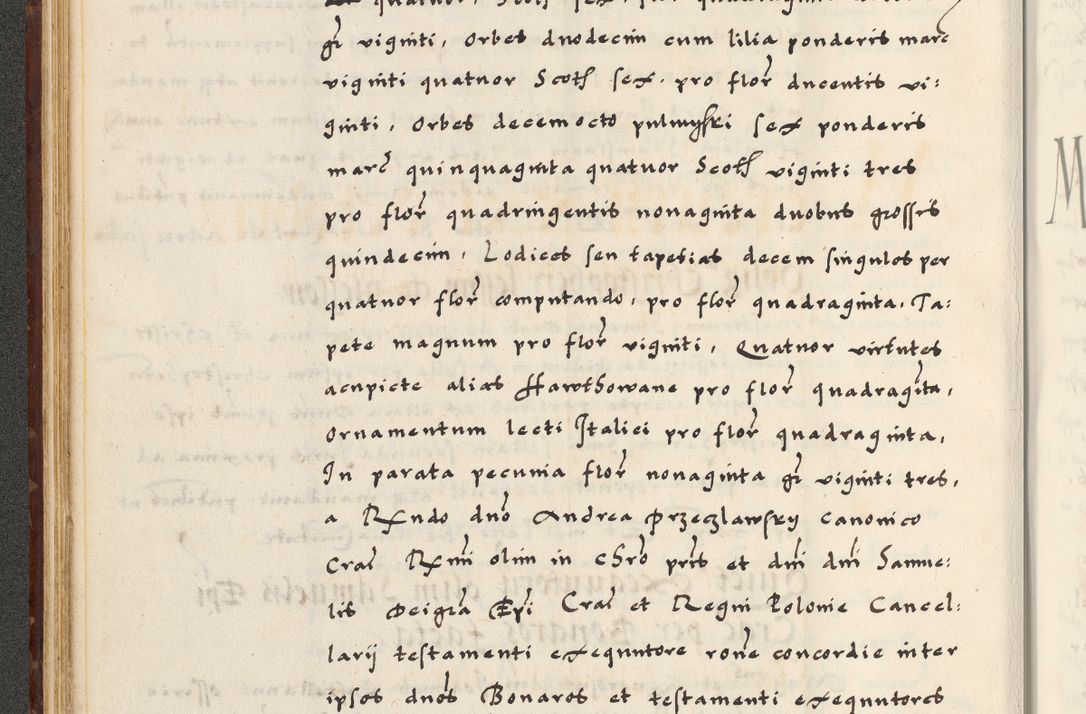 quatuor, Scoth sex, pro quadraginta
gr viginti, Orbes duodecim cum lilia ponderis marc
viginti quatuor Scoth sex. pro flor ducentis vi:
ginti, Orbes decemocto pulmyski sex ponderis
marc quinquaginta quatuor Scoth viginti tres
pro flor quadringentis nonaginta duobus grossis
quindecim, Lodices seu tapetias decem singulos per
quatuor flor computando, pro flor quadraginta, Ta:
pete magnum pro flor viginti, Quatuor virtutes
acupicte alias Hawthowane pro flor quadraginta,
Ornamentum lecti Italici pro flor quadraginta,
In parata pecunia flor nonaginta gr viginti tres,
a Rxndo dno Andrea Przeczlawsky canonico
Crac Rxmi olim in chro pris et dni dni Samue:
lis Dei gra Epi Crac et Regni Polonie Cancel:
larij testamenti exequutore rone concordie inter
ipsos dnos Bonaros et testamenti exequutores
M